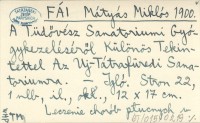 FÁI Mátyás Miklós 1900.
A Tüdővész Sanatoriumi Gyó-
gykezeléséről Különös Tekin-
tettel Az Uj-Tátrafüredi Sana-
toriumra. Igló. Stron 22,
1 nlb, il., okl., 12 x 17 cm.
Leczenie chorób płucnych w